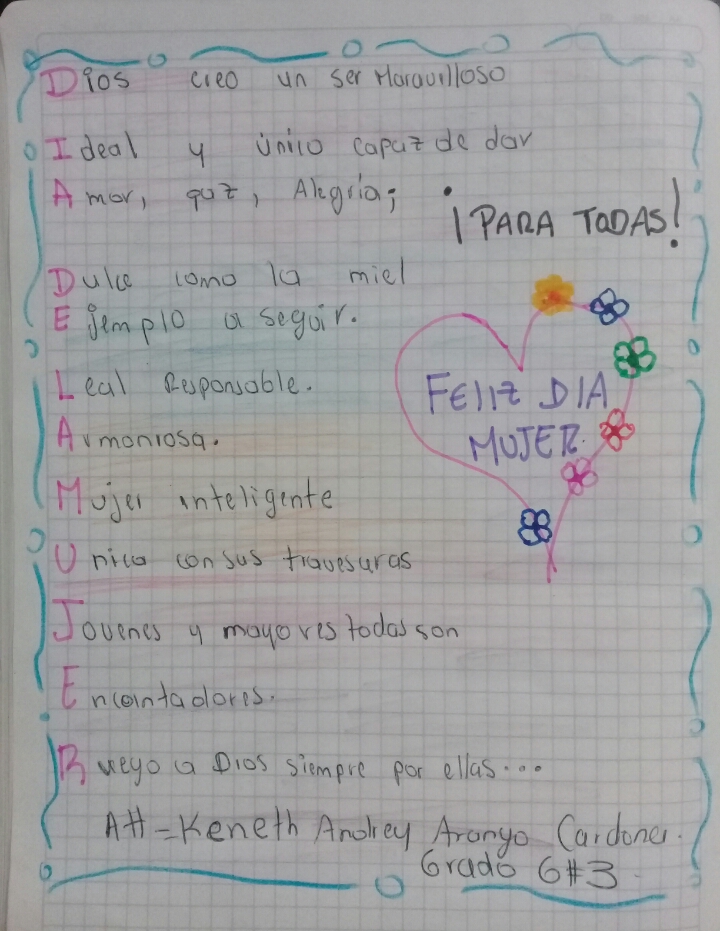 Dios creo un ser Maravilloso
Ideal y único capaz de dar
Amor, paz, Alegría;
¡PARA TODAS!
Dulce como la miel
Ejemplo a seguir.
Leal Responsable.
Armoniosa.
FELIZ DIA
MUJER.
Mujer inteligente
Unica con sus travesuras
Jovenes y mayores todas son
Encantadores.
Ruego a Dios siempre por ellas...
Att-Keneth Andrey Arango Cardona.
Grado 6#3